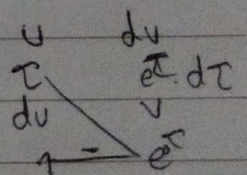 u dv
τ e^τ. dτ
du v
1 - e^τ